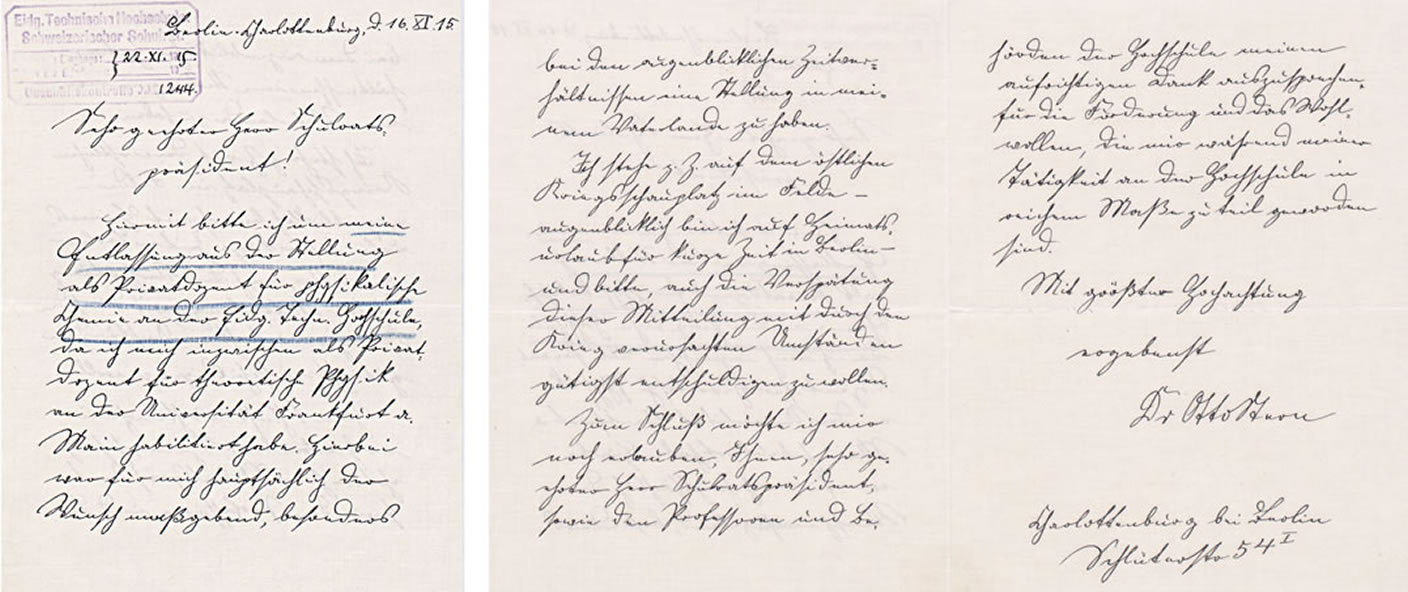 Eidg. Technische Hochschule
Schweizerischer Schulrat
22. XI. 15
1244.
Berlin-Charlottenburg, d. 16. XI. 15.
Sehr geehrter Herr Schulrats-
präsident!
Hiermit bitte ich um meine
Entlassung aus der Stellung
als Privatdozent für physikalische
Chemie an der Eidg. Techn. Hochschule,
da ich mich inzwischen als Privat-
dozent für theoretische Physik
an der Universität Frankfurt a.
Main habilitiert habe. Hierbei
war für mich hauptsächlich der
Wunsch maßgebend, besonders
bei den augenblicklichen Zeitver-
hältnissen eine Stellung in mei-
nem Vaterlande zu haben.
Ich stehe z. Z. auf dem östlichen
Kriegsschauplatz im Felde –
augenblicklich bin ich auf Heimats-
urlaub für kurze Zeit in Berlin –
und bitte, auch die Verspätung
dieser Mitteilung mit durch den
Krieg verursachten Umständen
gütigst entschuldigen zu wollen.
Zum Schluß möchte ich mir
noch erlauben, Ihnen, sehr ge-
ehrter Herr Schulratspräsident,
sowie den Professoren und Be-
hörden der Hochschule meinen
aufrichtigen Dank auszusprechen,
für die Förderung und das Wohl-
wollen, die mir während meiner
Tätigkeit an der Hochschule in
reichem Maße zu teil geworden
sind.
Mit größter Hochachtung
ergebenst
Dr Otto Stern
Charlottenburg bei Berlin
Schlüterstr 54 I